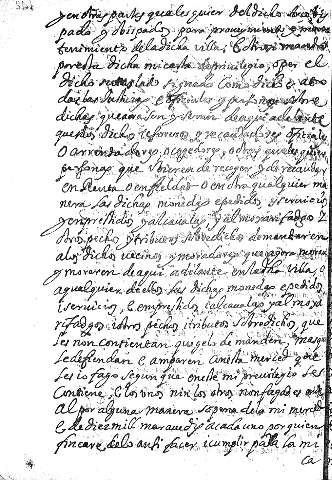 y en otras partes quales quier del dicho arzobis
pado y obispados para proueymiento y mante
tenimiento de la dicha villa E otrosi mando
por esta dicha mi carta de preuilegio o por el
dicho su traslado signado como dicho es a to
das las Justiçias e ofiçiales y personas sobre
dichas que aora son y seran de aqui adelante
que si los dichos tesoreros y recaudadores ofiçiales
O arrendadores o cogedores otras quales quier
personas que obieren de recoger y de recaudar
en Renta o en fieldad o en otra qualquier ma
nera las dichas monedas e pedidos y seruiçios
y enprestidos y alcaualas y almoxarifadgos E
otros pechos y tributos sobre dichos demandaren
a los dichos vecinos y moradores que agora moran
y moraren de aqui adelante en la dicha villa o
a qualquier dellos las dichas monedas e pedidos
i seruiçios, E emprestidos E alcaualas y almoxa
rifadgos i otros pechos i tributos sobredichos, que
les non consientan que gelo demanden, mas que
se defiendan E amparen con esta merced que
les io fago segun que en este mi preuilegio se
Contiene, E los unos nin los otros non fagades ende
Al por alguna manera so pena de la mi merced
E de diez mil marauedis a cada uno por quien
fincare de lo ansi facer i cumplir para la mi
Ca